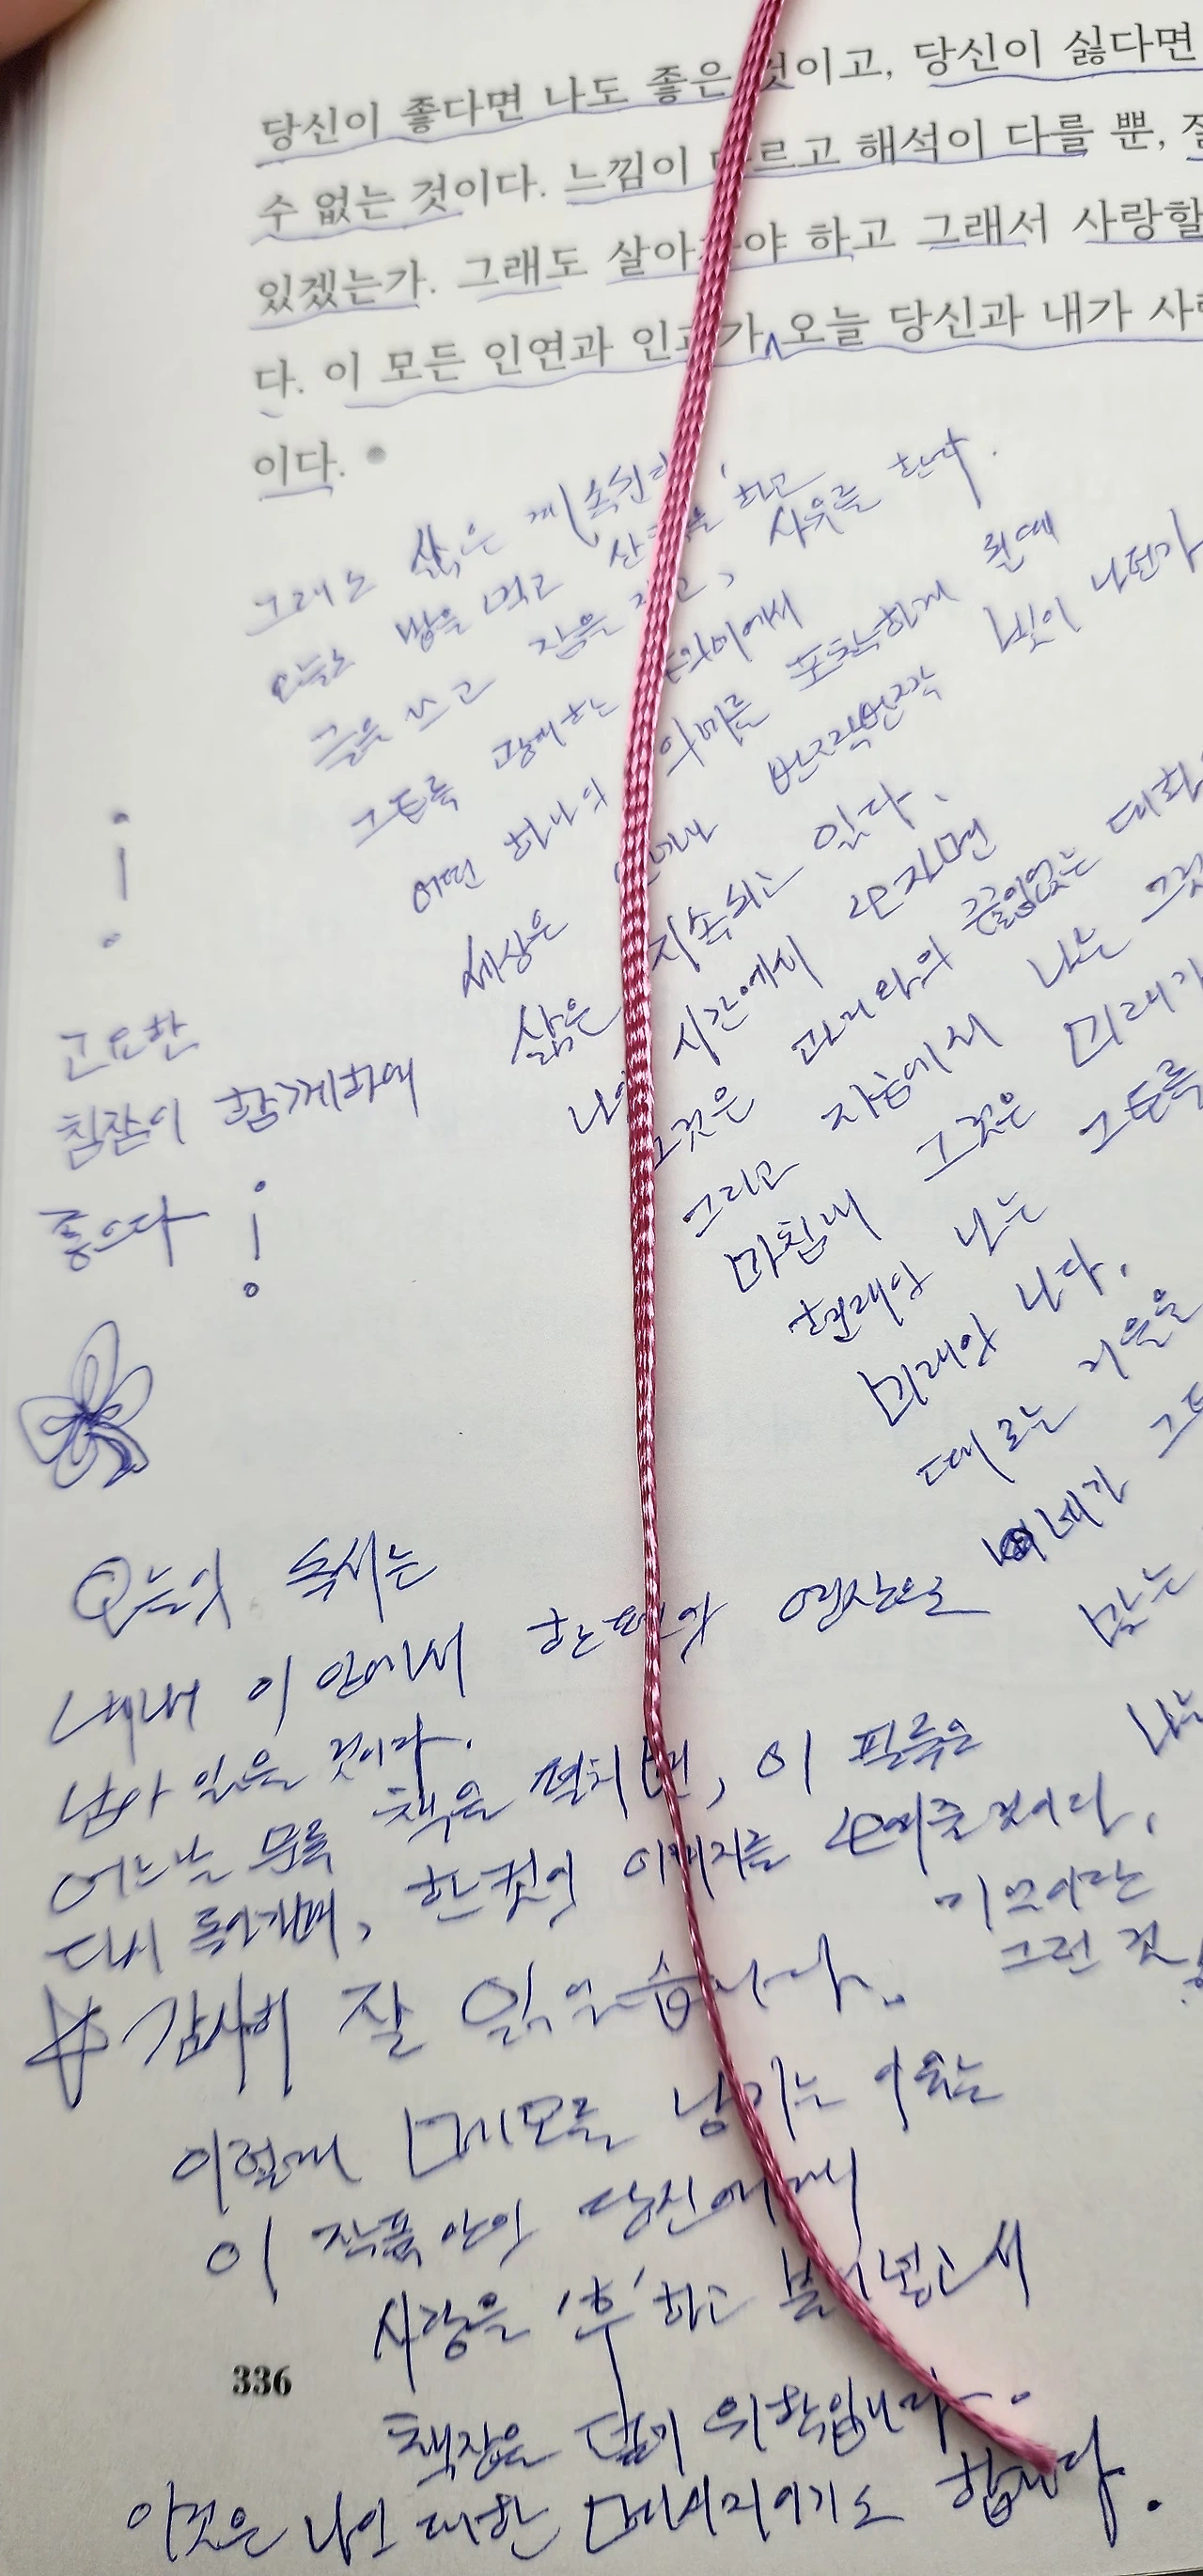 당신이 좋다면 나도 좋은 것이고, 당신이 싫다면
수 없는 것이다. 느낌이 다르고 해석이 다를 뿐, 잘
있겠는가. 그래도 살아가야 하고 그래서 사랑할
다. 이 모든 인연과 인과가 오늘 당신과 내가 사
이다.
그래도 삶은 계속된다
오늘도 밥을 먹고 산책을 하고
글을 쓰고 잠을 자고, 사유를 한다.
그토록 광대한 의미에서
어떤 하나의 의미를 포착하게 된데
세상은 언제나 반짝반짝 빛이 나던가
삶은 지속되고 있다.
나의 시간에서 보자면
그것은 과거와의 끝임없는 대화
그리고 지금에서 나는 그것
마침내 그것은 미래가
현재와 나는 그토록
미래의 나다.
때로는 거울을
내가 그
맞는
나는
기묘이라는
그런 것
고요한
침잠이 함께하여
좋으다
오늘의 독서는
내내 이 안에서 한 편의 영상으로
남아 있을 것이다.
어느날 문득 책을 펼치면, 이 필륵은
다시 돌아가며, 한 컷의 이미지를 보여줄 것이다.
감사히 잘 읽었습니다.
이렇게 메모를 남기는 이유는
이 작품 안의 당신에게
사랑을 '후' 하고 불어넣고서
책장을 덮기 위함입니다.
336
이것은 나에 대한 메세지이기도 합니다.